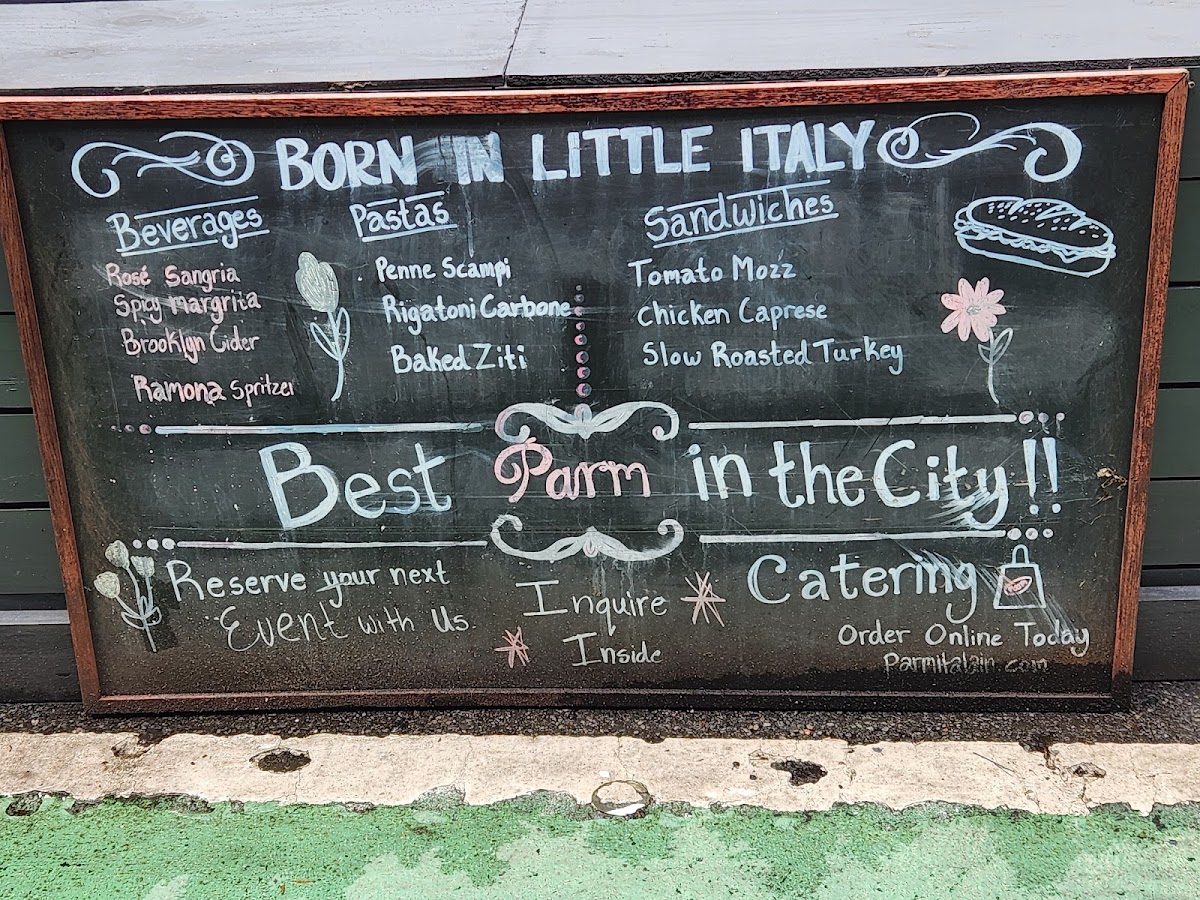 BORN IN LITTLE ITALY
Beverages
Rosé Sangria
Spicy Margrita
Brooklyn Cider
Ramona Spritzer
Pastas
Penne Scampi
Rigatoni Carbone
Baked Ziti
Sandwiches
Tomato Mozz
Chicken Caprese
Slow Roasted Turkey
Best Parm in the City!!
Reserve your next
Event with Us.
Inquire
Inside
Catering
Order Online Today
Parmitalain.com